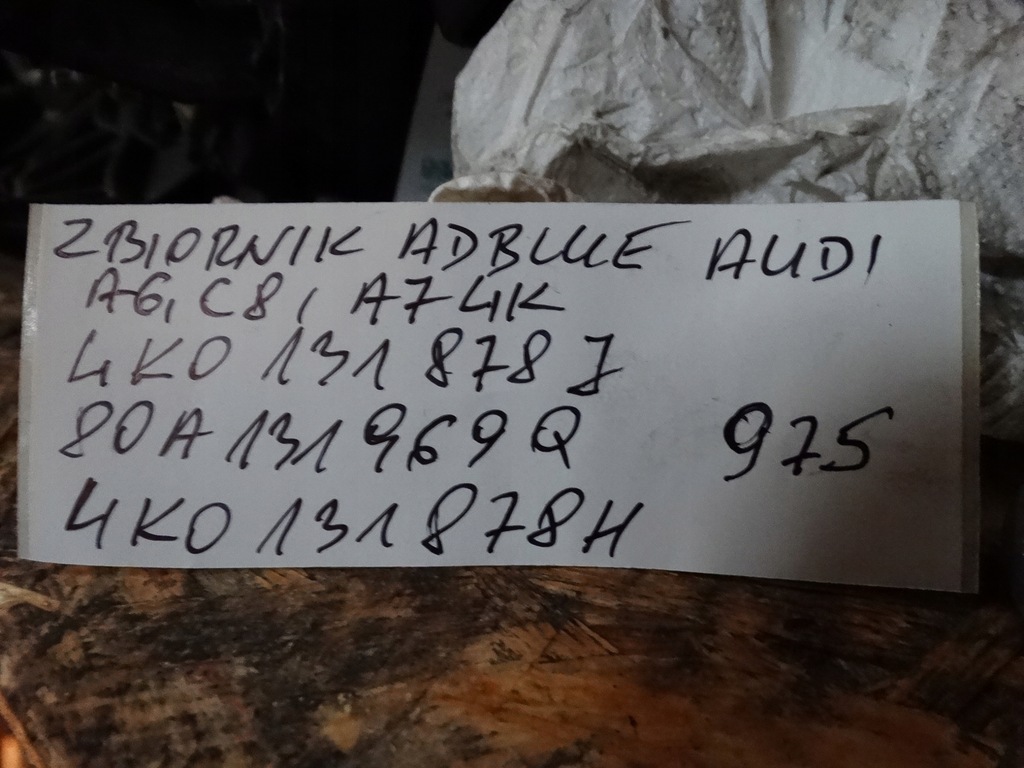 ZBIORNIK ADBLUE AUDI
A6, C8, A7 4K
4K0 131 878 J
80A 131 969 Q 975
4K0 131 878 H